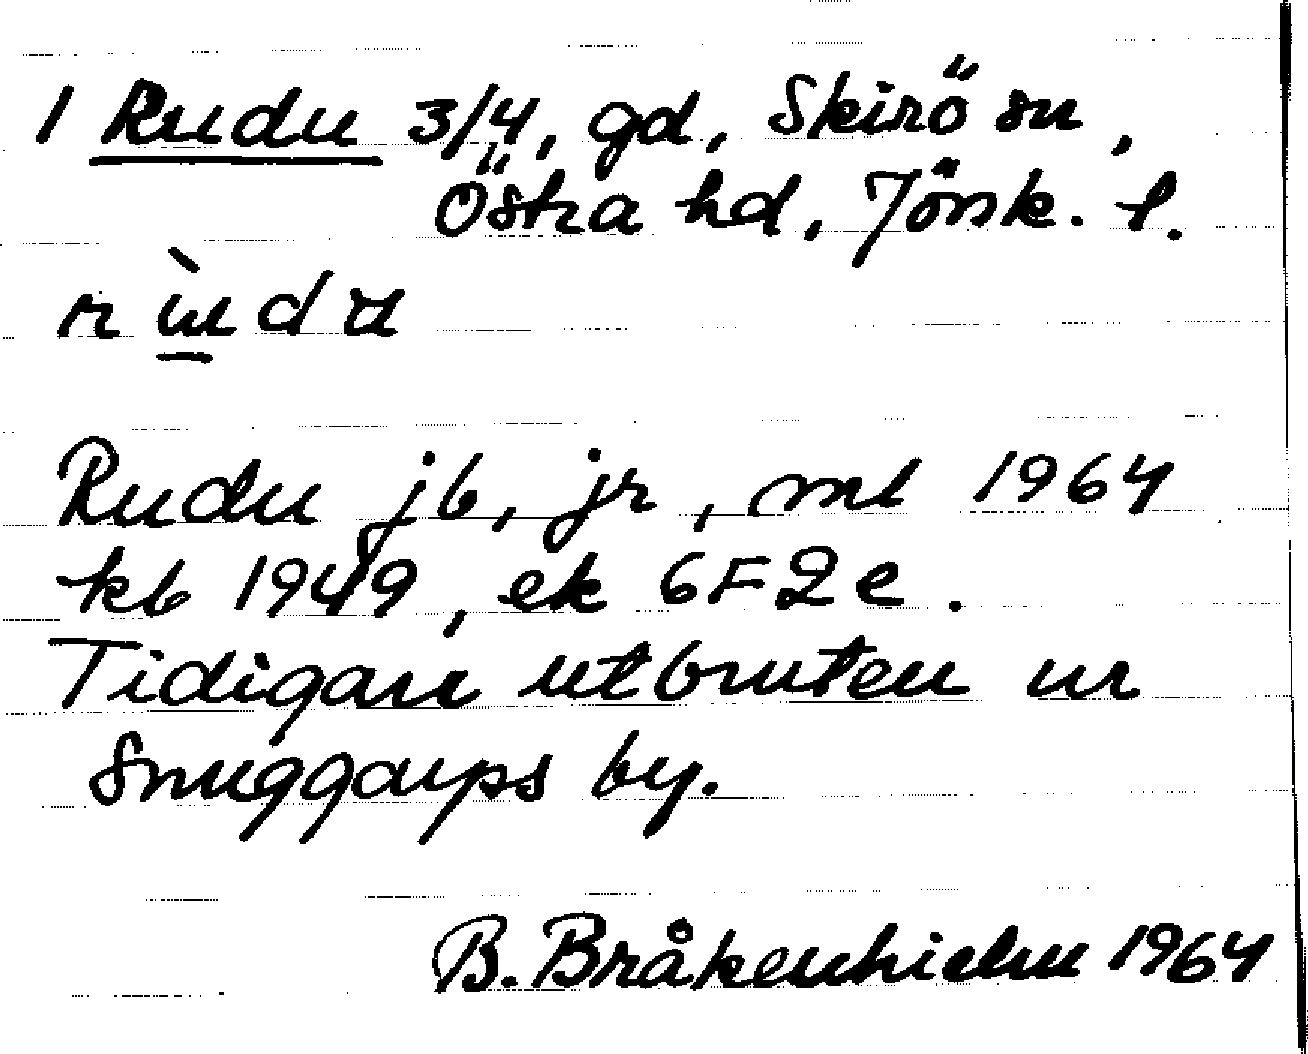 1 Rudu 3/4, gd, Skirö sn,
Östra hd, Jönk. l.
Rudu jb, jr, ml 1964
kb 1949, ek 6F2e.
Tidigare utbruten ur
Snuggarps by.
B. Bråkenhielm 1964